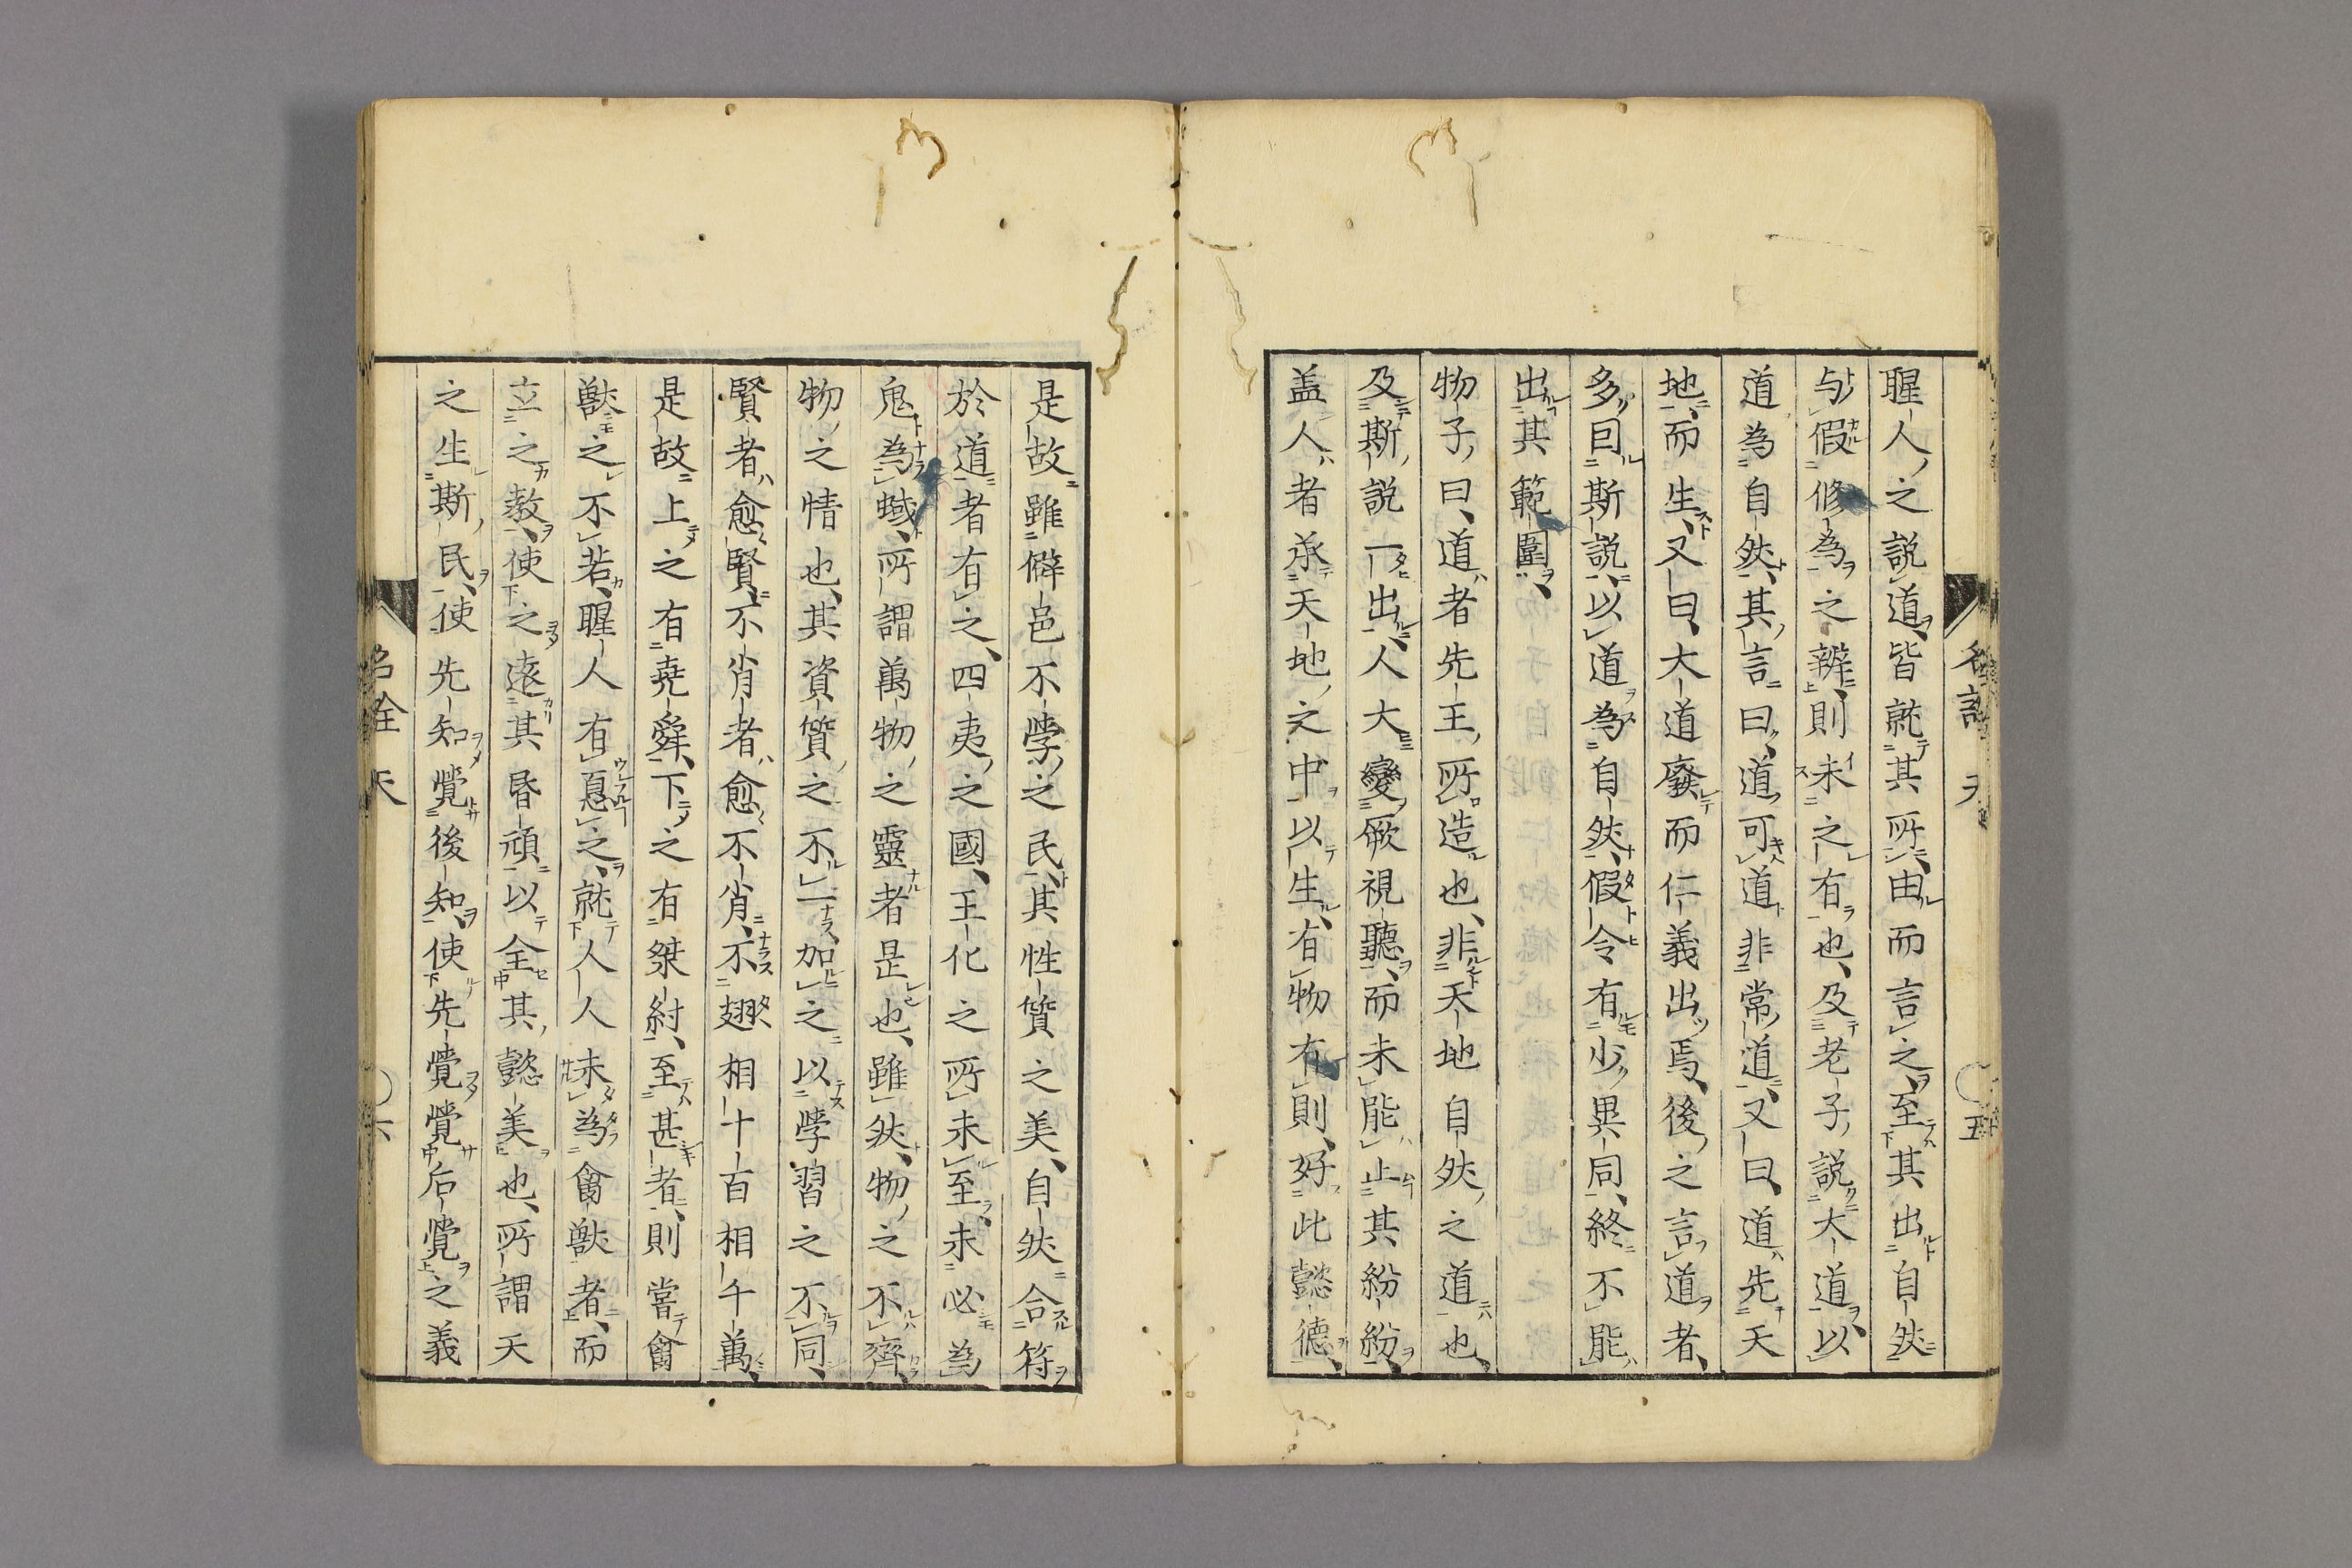 聖人之説道皆就其所由而言之至其出自然
与假修為之辨則未之有也及老子説大道以
道為自然其言曰道可道非常道又曰道先天
地而生又曰大道廢而仁義出焉後之言道者
多因斯説以道為自然假令有少異同終不能
出其範圍
物子曰道者先王所造也非天地自然之道也
及斯説一出人大變厥視聽而未能止其紛紛
盖人者承天地之中以生有物有則好此懿德
名詮 天
五
是故雖僻邑不學之民其性質之美自然合符
於道者有之四夷之國王化之所未至未必為
鬼為蜮所謂萬物之靈者是也雖然物之不齊
物之情也其資質之不一加之以學習之不同
賢者愈賢不肖者愈不肖不翅相十百相千萬
是故上之有堯舜下之有桀紂至甚者則嘗禽
獸之不若聖人有恴之就人人未為禽獸者而
立之教使之遠其昏頑以全其懿美也所謂天
之生斯民使先知覺後知使先覺覺后覺之義
名詮 天
六